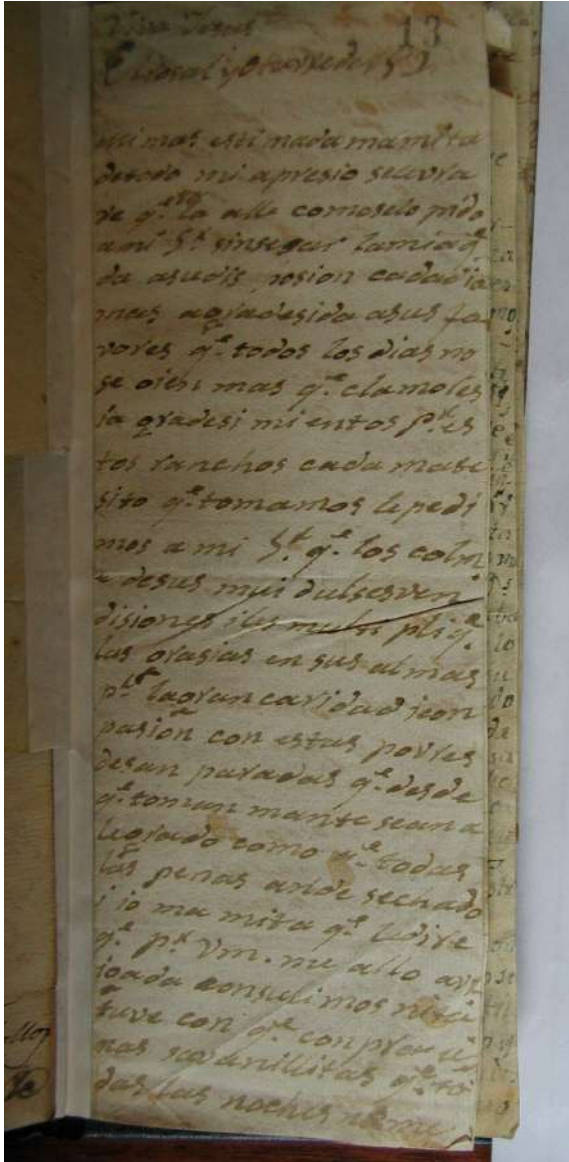 Viva Jesus
13
mi mas estimada mamita
de todo mi apresio selevra
re q.e la alle como selo pido
a mi S.r sinsesar la mia q.e
da asu dis posion cada dia
mas agradesida asus fa
vores q.e todos los dias no
se oien mas q.e clamoles
ia gradesi mientos p.r es
tos ranchos cada mate
sito q.e tomamos le pedi
mos a mi S.r q.e los colm
e de sus mui dulses ven
disiones i les multi pliq.e
las grasias en sus almas
p.r la gran caridad icon
pasion con estas povres
desan paradas q.e desde
q.e toman mante sean a
legrado como q.e todas
las penas an de sechado
i io ma mita q.e le dire
q.e p.r Vm. me allo avi
iada
tuve con q.e con prar u
nas savanillitas q.e to
das las noches